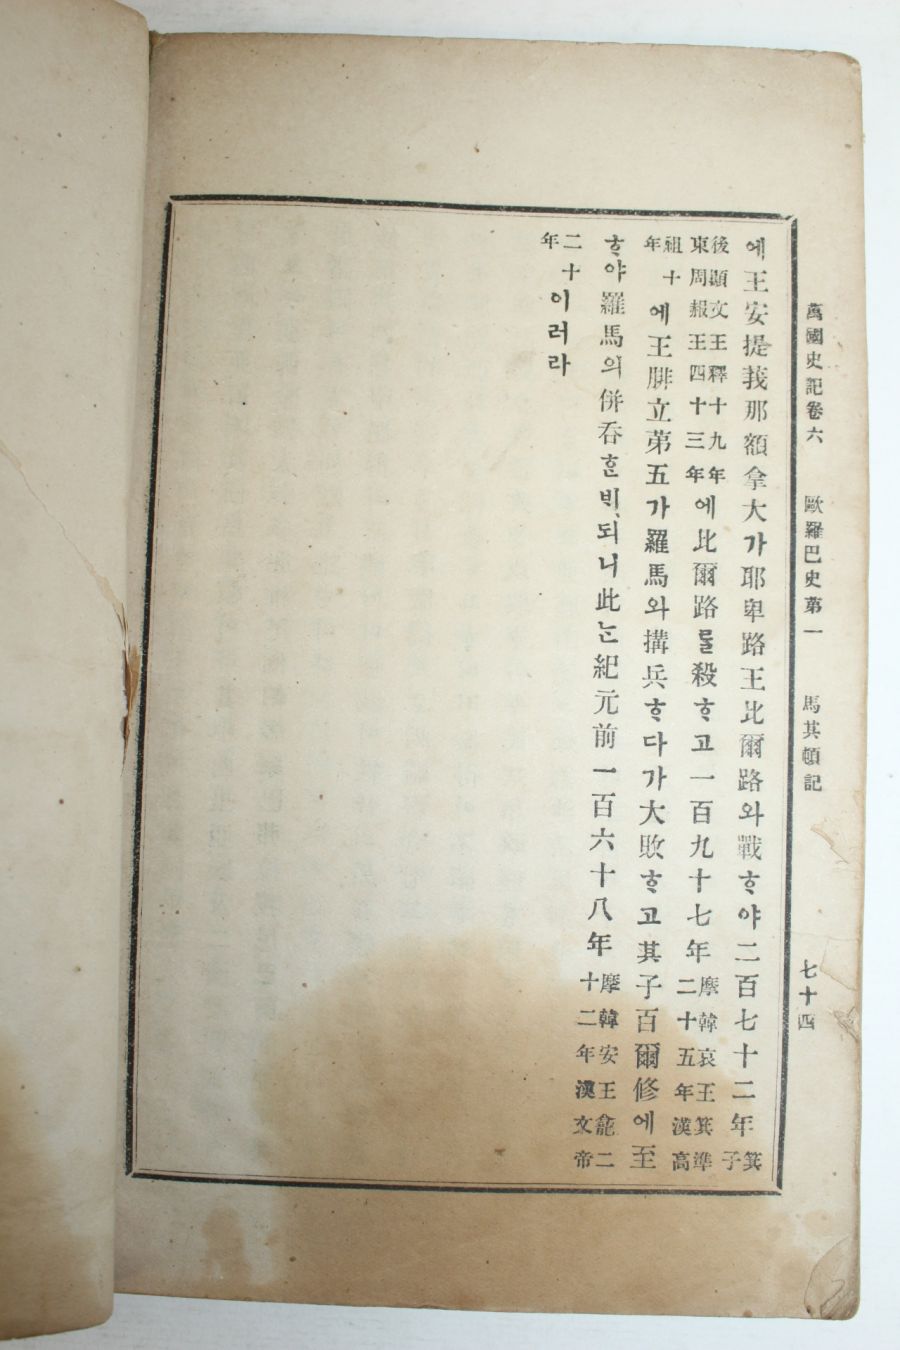 萬國史記卷六 歐羅巴史第一 馬其頓記 七十四
에王安提莪那額拿大가耶卑路王比爾路와戰ᄒᆞ야二百七十二年箕子
後顯文王釋十九年東周赧王四十三年에比爾路를殺ᄒᆞ고一百九十七年摩韓哀王箕準二十五年漢高
祖十年에王腓立第五가羅馬와搆兵ᄒᆞ다가大敗ᄒᆞ고其子百爾修에至
ᄒᆞ야羅馬의倂呑ᄒᆞᆫᄇᆡ되니此ᄂᆞᆫ紀元前一百六十八年摩韓安王龕二十二年漢文帝
二十年이러라